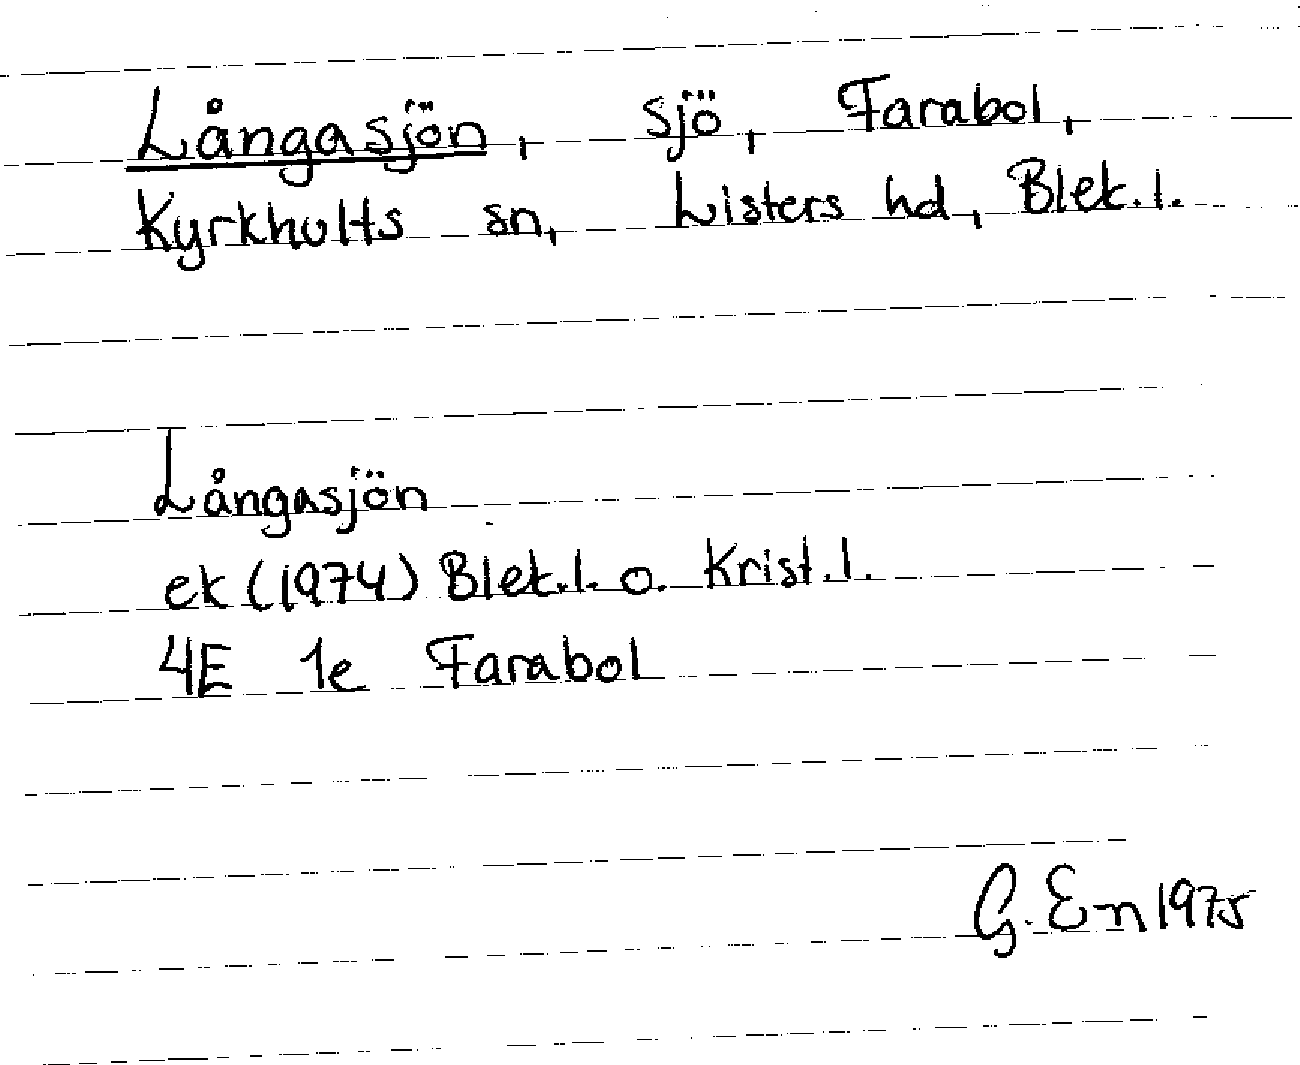 Långasjön, sjö, Farabol,
Kyrkhults sn, Listers hd, Blek.l.
Långasjön
ek (1974) Blek.l. o. Krist.l.
4E 1e Farabol
G. En 1975